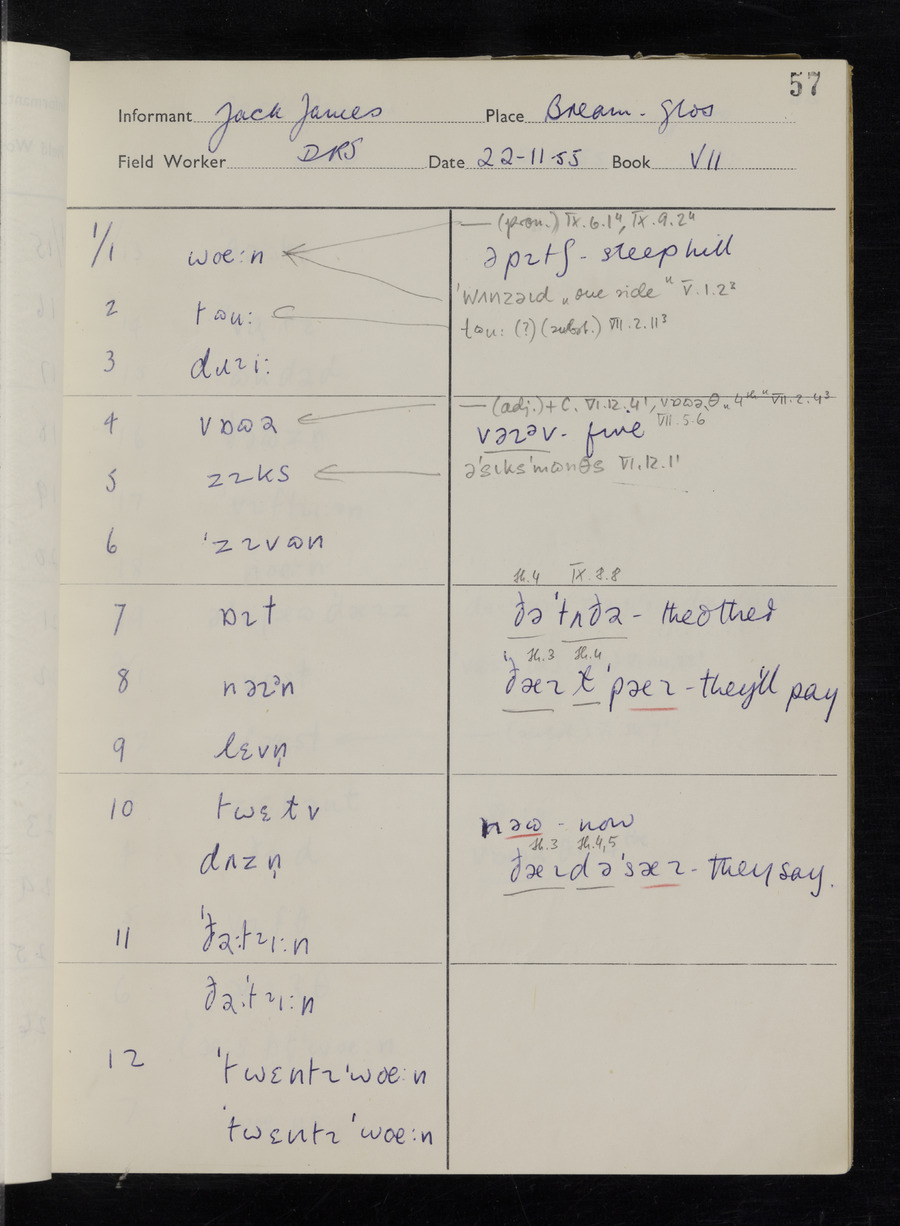 57
Informant Jack James Place Bream - Glos
Field Worker DRS Date 22-11-55 Book VII
1/1 wœ:n
2 tɷu:
3 dɹɪi:
4 vɒɷə
5 zɪks
6 ˈzɪvɷn
7 ɒɪt
8 nəɪᵊn
9 lɛvn̩
10 twɛɫv
dʌzn̩
11 ˈðə:tɪi:n
ðə:ˈtɪi:n
12 ˈtwɛntɪˈwœ:n
ˈtwɛntɪˈwœ:n
— (pron.) IX.6.1⁴, IX.9.2⁴
ə pɪtʃ - steep hill
ˈwʌnzəɪd „one side" V.1.2³
tɷu: (?) (subst.) VII.2.11³
— (adj.) + C. VI.12.4¹, vɒɷə,θ „4th" VII.2.4³
VII.5.6
vəɪəv - five
əˈsɪksˈmɷnθs VI.12.1¹
Sh.4 IX.8.8
ðəˈtʌðə - the other
Sh.3 Sh.4
ðæɪ ɫ ˈpæɪ - they'll pay
nəɷ - now
Sh.3 Sh.4,5
ðæɪ d əˈsæɪ - they say.